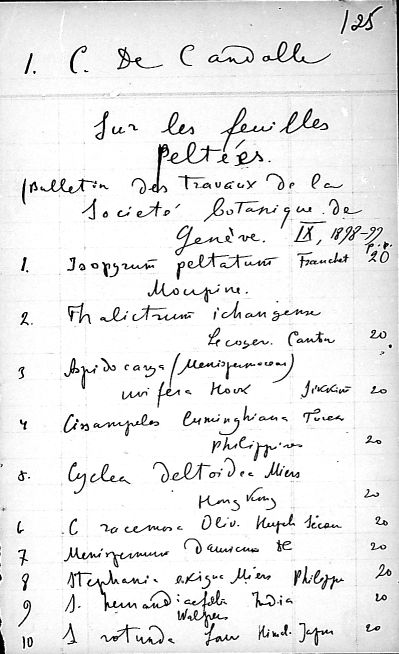 125
1. C. De Candolle
Sur les feuilles
peltées.
(Bulletin des travaux de la
Societé botanique de
Genève. IX, 1898-99
1. Isopyrum peltatum Franchet p. 20
Moupine.
2. Thalictrum ichangense
Lecoyer. Canton 20
3 Aspidocarya (Menispermaceae)
uvifera Hook Sikkim 20
4 Cissampelos Cuminghiana Turcz
Philippines 20
5. Cyclea deltoidea Miers
Hong Kong 20
6 C racemosa Oliv. Hupeh 20
7 Menispermum Dauricum DC 20
8 Stephania exigua Miers Philipp 20
9 S. hernandiaefolia India 20
Walpers
10 S rotunda Lour Himal. Japon 20